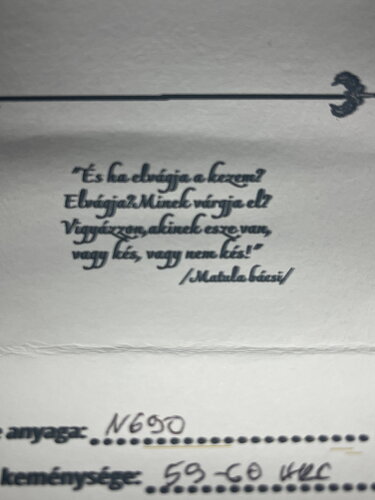 "És ha elvágja a kezem?
Elvágja? Minek várgja el?
Vigyázzon, akinek esze van,
vagy kés, vagy nem kés!"
/Matula bácsi/
anyaga: N690
keménysége: 59-60 HRC